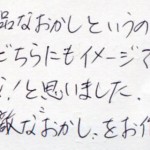 品なおかしというの
どちらにもイメージマ
！と思いました．
敵なおかし をお作